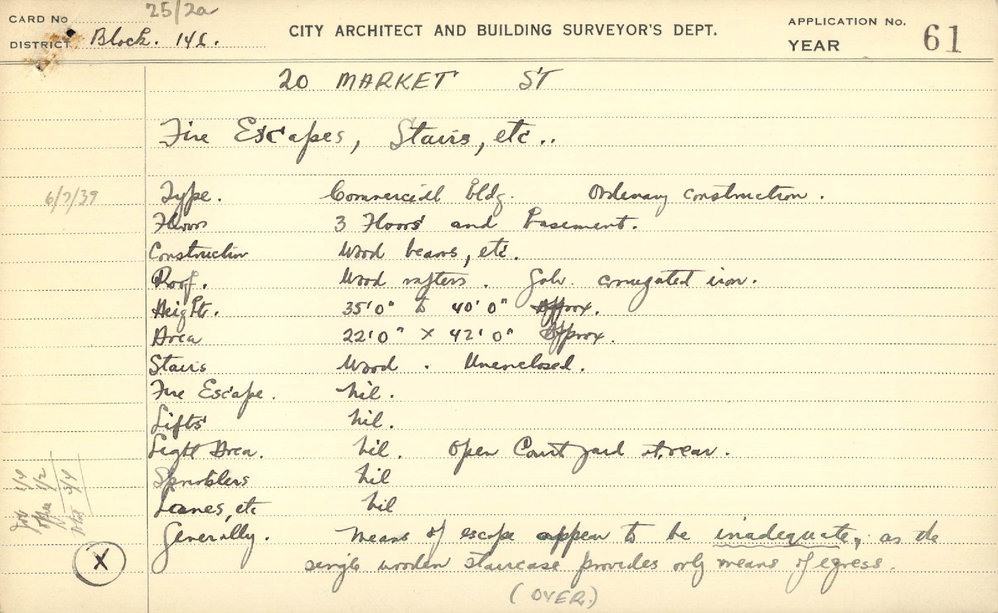 CARD No 25/2a
DISTRICT Block. 14E.
CITY ARCHITECT AND BUILDING SURVEYOR'S DEPT.
APPLICATION No.
YEAR 61
20 MARKET ST
Fire Escapes, Stairs, etc..
6/7/39
Type. Commercial bldg. Ordinary construction.
Floors 3 Floors and Basement.
Construction Wood beams, etc.
Roof. Wood rafters. Galv. corrugated iron.
Height. 35'0" to 40'0" Approx.
Area 22'0" x 42'0" Approx.
Stairs Wood. Unenclosed.
Fire Escape. Nil.
Lifts Nil.
Light Area. Nil. Open Court yard at rear.
Sprinklers Nil
Lanes, etc Nil
Generally. Means of escape appear to be inadequate, as the
single wooden staircase provides only means of egress.
(OVER.)
X